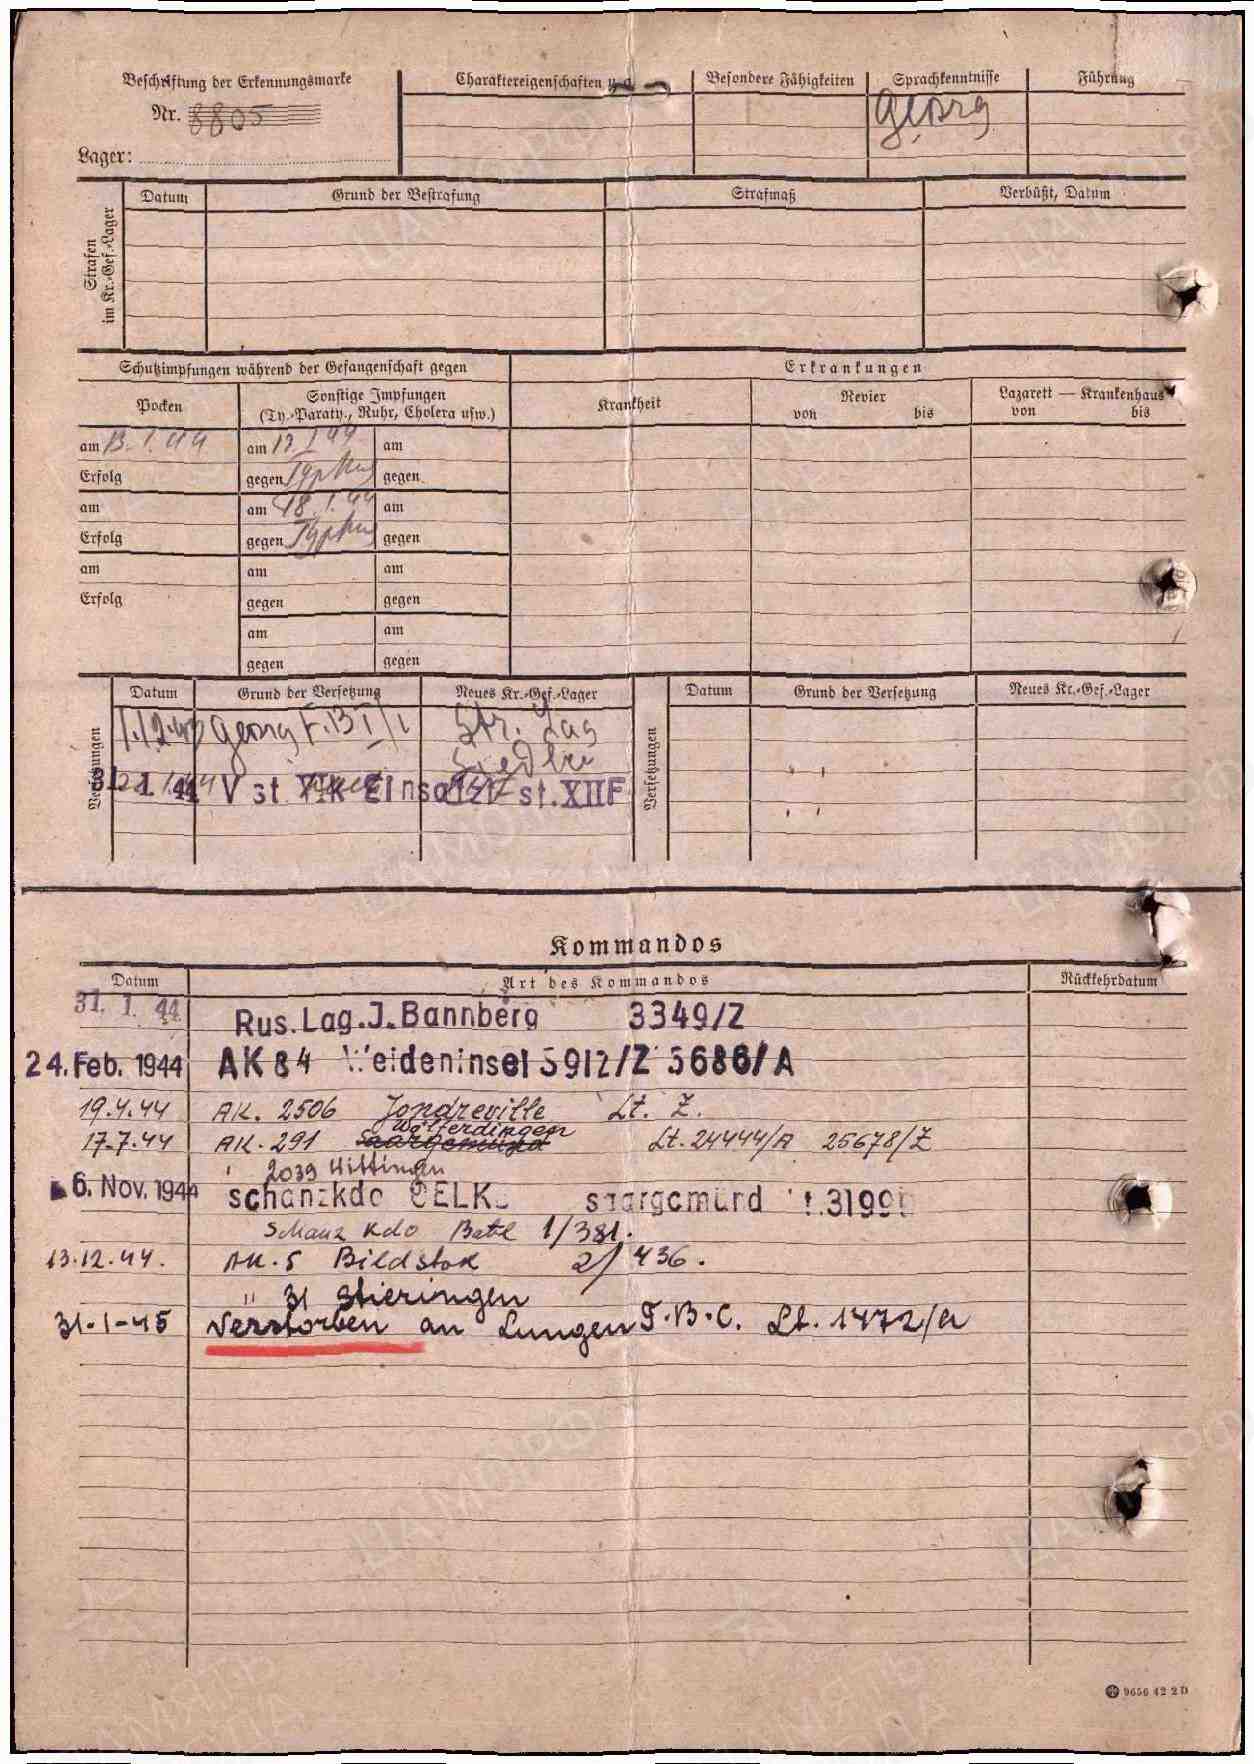 Beschriftung der Erkennungsmarke
Nr. 8805
Lager:
Charaktereigenschaften u. a.
Besondere Fähigkeiten
Sprachkenntnisse
Führung
georg
Strafen im Kr.-Gef.-Lager
Datum
Grund der Bestrafung
Strafmaß
Verbüßt, Datum
Schutzimpfungen während der Gefangenschaft gegen
Erkrankungen
Pocken
Sonstige Impfungen
(Ty.-Paraty., Ruhr, Cholera usw.)
Krankheit
Revier
von bis
Lazarett — Krankenhaus
von bis
am 13.1.44 am 12.1.44 am
Erfolg gegen Typhus gegen
am am 18.1.44 am
Erfolg gegen Typhus gegen
am am am
Erfolg gegen gegen
am am
gegen gegen
Versetzungen
Datum Grund der Versetzung Neues Kr.-Gef.-Lager
Versetzungen
Datum Grund der Versetzung Neues Kr.-Gef.-Lager
1.12.43 georg Str. Lag
Siedlce
31. 1. 44 V st Einsatz st. XIIF
Kommandos
Datum Art des Kommandos Rückkehrdatum
31. 1. 44 Rus. Lag. J. Bannberg 3349/Z
24. Feb. 1944 AK 84 Weideninsel 5912/Z 5686/A
19.4.44 AK. 2506 Jondreville Lt. Z.
Wölferdingen
17.7.44 AK. 291 Saargemünd Lt. 24444/A 25678/Z
" 2039 Hittingen
6. Nov. 1944 schanzkdo saargemünd
Schanz Kdo Batl 1/381.
13.12.44. AK. 5 Bildstok 2/436.
" 31 Stieringen
31-1-45 Verstorben an Lungen T.B.C. Lt. 1472/a
9656 42 2 D